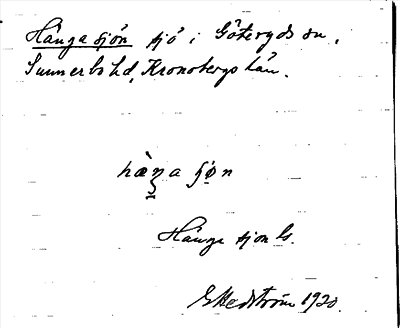 Hängasjön sjö i Göteryds sn.
Sunnerbo hd, Kronobergs län.
hæ̀ŋa ʃøn
Hänge sjon ls.
G Hedström 1920.